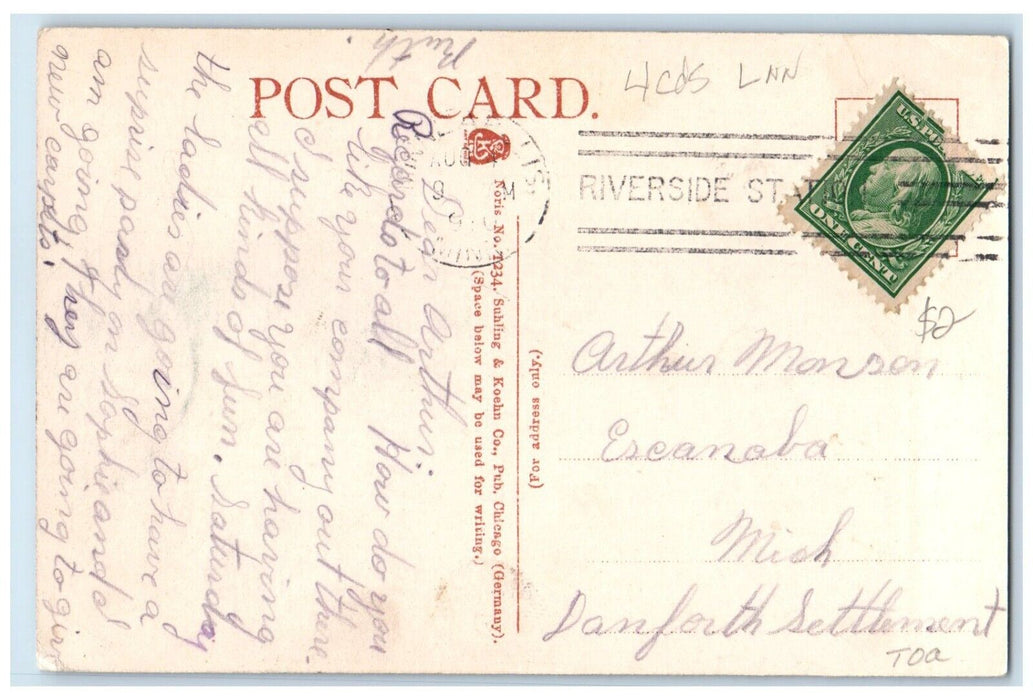 POST CARD.
4cds LNN
AUG
9 M
RIVERSIDE ST.
U.S. PO
ONE CENT
$2
Noris No. 1234. Suhling & Koehn Co., Pub. Chicago (Germany).
(Space below may be used for writing.)
(For address only.)
Dear Arthur:
How do you
like your company out there.
I suppose you are having
all kinds of fun. Saturday
the ladies are going to have a
suprise party on Sophie and
am going, they are going to give
new carpets.
Regards to all
Ruth.
Arthur Monson
Escanaba
Mich
Danforth Settlement
TOa